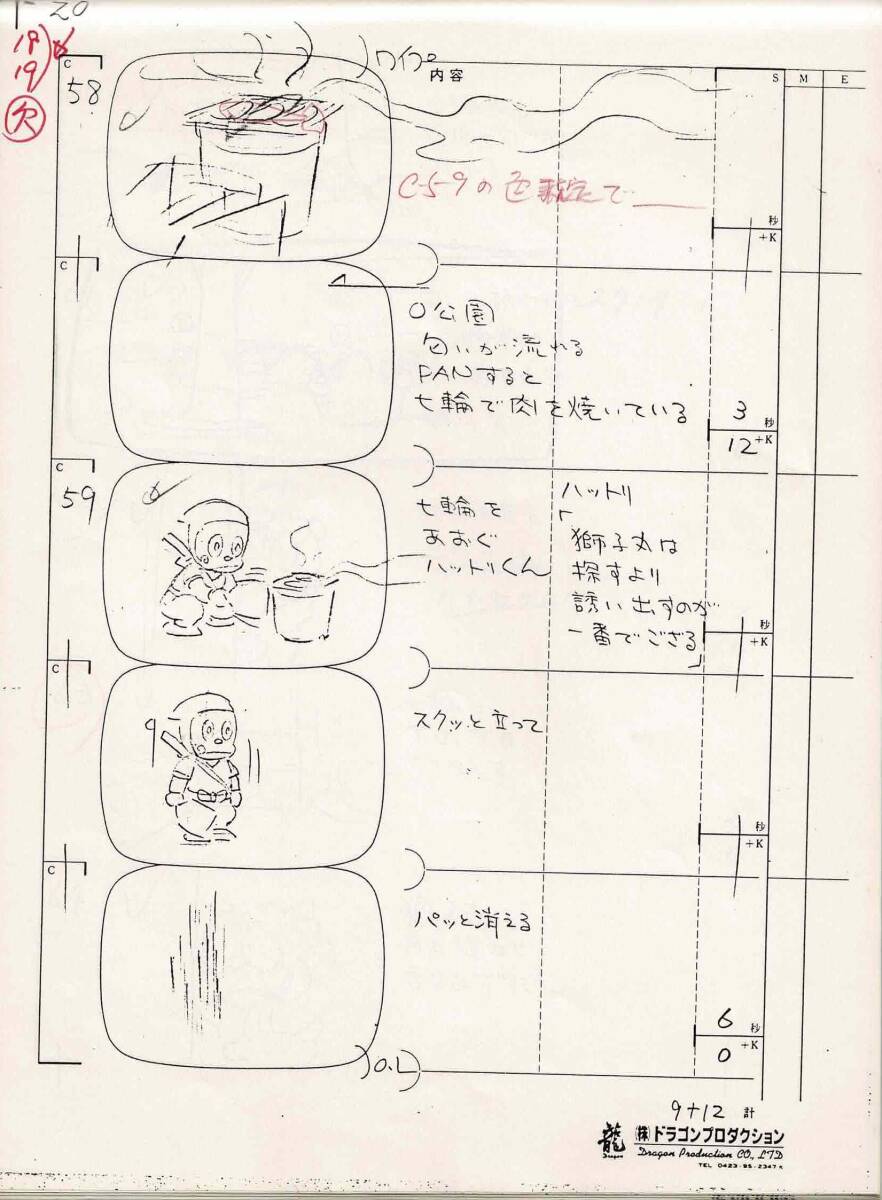 20
18
19
欠
C
58
ワイプ
内容
S
M
E
C-59の色
で
秒
+K
C
○公園
匂いが流れる
PANすると
七輪で肉を焼いている
3
秒
12
+K
C
59
七輪を
あおぐ
ハットリくん
ハットリ
「
獅子丸は
探すより
誘い出すのが
一番でござる
」
秒
+K
C
スクッと立って
秒
+K
C
パッと消える
6
秒
0
+K
O.L
9+12 計
龍
Dragon
(株)ドラゴンプロダクション
Dragon Production CO., LTD
TEL 0423-95-2347